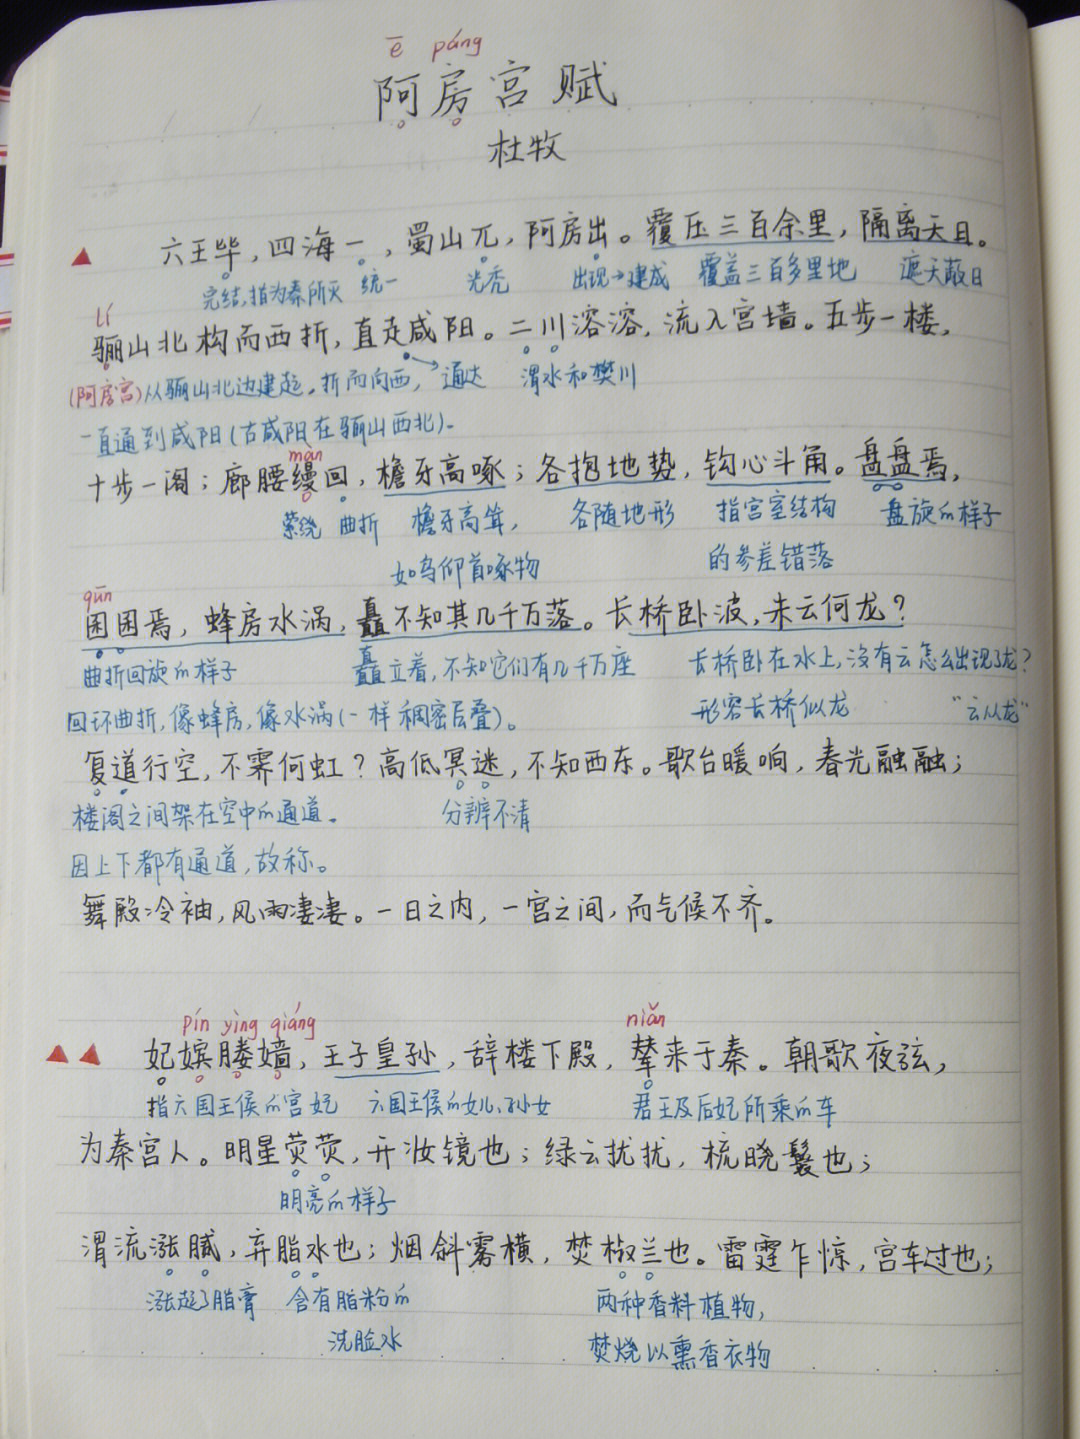 ē páng
阿房宫赋
杜牧
六王毕，四海一，蜀山兀，阿房出。覆压三百余里，隔离天日。
完结，指为秦所灭 统一 光秃 出现→建成 覆盖三百多里地 遮天蔽日
lí
骊山北构而西折，直走咸阳。二川溶溶，流入宫墙。五步一楼，
(阿房宫)从骊山北边建起，折而向西， 通达 渭水和樊川
一直通到咸阳(古咸阳在骊山西北)。
màn
十步一阁；廊腰缦回，檐牙高啄；各抱地势，钩心斗角。盘盘焉，
萦绕 曲折 檐牙高耸， 各随地形 指宫室结构 盘旋的样子
如鸟仰首啄物 的参差错落
qūn
囷囷焉，蜂房水涡，矗不知其几千万落。长桥卧波，未云何龙？
曲折回旋的样子 矗立着，不知它们有几千万座 长桥卧在水上，没有云怎么出现了龙？
回环曲折，像蜂房，像水涡(一样稠密层叠)。 形容长桥似龙 “云从龙”
复道行空，不霁何虹？高低冥迷，不知西东。歌台暖响，春光融融；
楼阁之间架在空中的通道。 分辨不清
因上下都有通道，故称。
舞殿冷袖，风雨凄凄。一日之内，一宫之间，而气候不齐。
pín yìng qiáng niǎn
妃嫔媵嫱，王子皇孙，辞楼下殿，辇来于秦。朝歌夜弦，
指六国王侯的宫妃 六国王侯的女儿、孙女 君王及后妃所乘的车
为秦宫人。明星荧荧，开妆镜也；绿云扰扰，梳晓鬟也；
明亮的样子
渭流涨腻，弃脂水也；烟斜雾横，焚椒兰也。雷霆乍惊，宫车过也；
涨起了脂膏 含有脂粉的 两种香料植物，
洗脸水 焚烧以熏香衣物